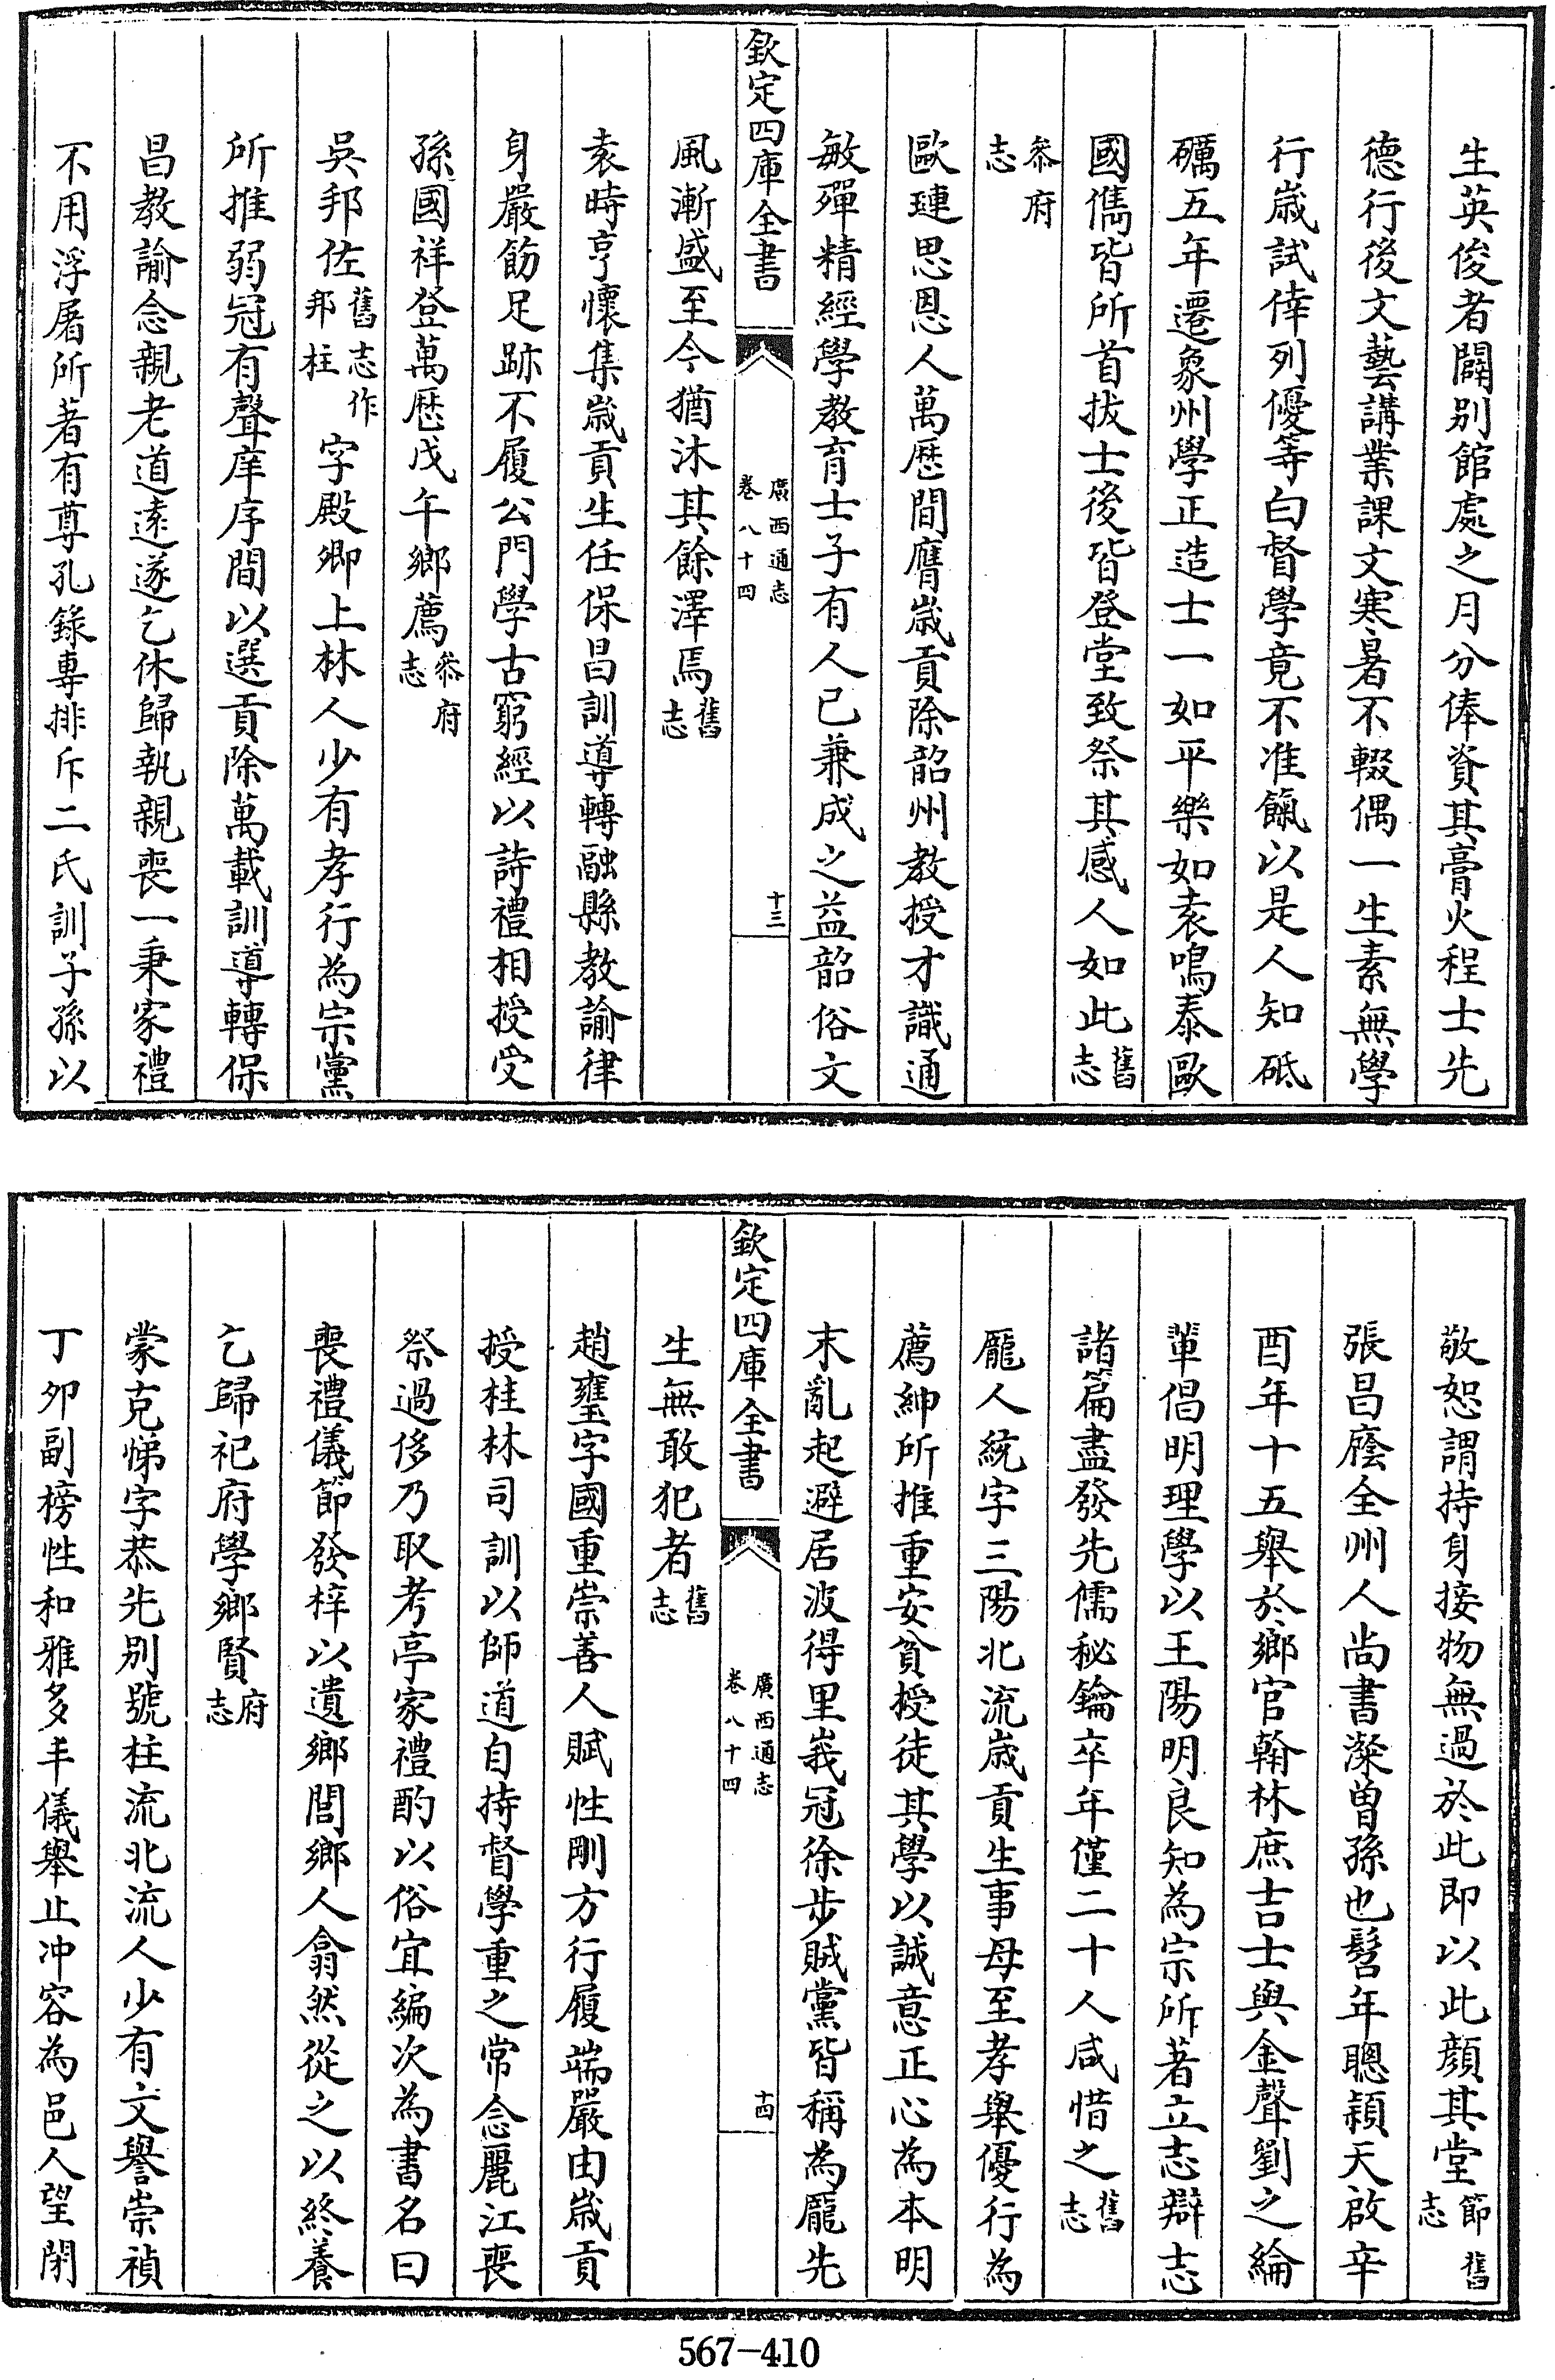 生英俊者闢別館處之月分俸資其膏火程士先
德行後文藝講業課文寒暑不輟偶一生素無學
行歲試倖列優等白督學竟不准餼以是人知砥
礪五年遷象州學正造士一如平樂如袁鳴泰歐
國儁皆所首拔士後皆登堂致祭其感人如此舊志
叅府志
歐璉思恩人萬歴間膺歲貢除韶州教授才識通
敏殫精經學教育士子有人已兼成之益韶俗文
欽定四庫全書
廣西通志
卷八十四
十三
風漸盛至今猶沐其餘澤焉舊志
袁時亨懷集歲貢生任保昌訓導轉融縣教諭律
身嚴飭足跡不履公門學古窮經以詩禮相授受
孫國祥登萬歴戊午鄉薦叅府志
吳邦佐舊志作邦柱字殿卿上林人少有孝行為宗黨
所推弱冠有聲庠序間以選貢除萬載訓導轉保
昌教諭念親老道遠遂乞休歸執親喪一秉家禮
不用浮屠所著有尊孔錄專排斥二氏訓子孫以
敬恕謂持身接物無過於此即以此顔其堂節舊志
張昌廕全州人尚書濴曽孫也髫年聰穎天啟辛
酉年十五舉於鄉官翰林庶吉士與金聲劉之綸
軰倡明理學以王陽明良知為宗所著立志辯志
諸篇盡發先儒秘鑰卒年僅二十人咸惜之舊志
龐人統字三陽北流歲貢生事母至孝舉優行為
薦紳所推重安貧授徒其學以誠意正心為本明
末亂起避居波得里峩冠徐步賊黨皆稱為龐先
欽定四庫全書
廣西通志
卷八十四
十四
生無敢犯者舊志
趙壅字國重崇善人賦性剛方行履端嚴由歲貢
授桂林司訓以師道自持督學重之常念麗江喪
祭過侈乃取考亭家禮酌以俗宜編次為書名曰
喪禮儀節發梓以遺鄉閭鄉人翕然從之以終養
乞歸祀府學鄉賢府志
蒙克悌字恭先別號柱流北流人少有文譽崇禎
丁夘副榜性和雅多丰儀舉止冲容為邑人望閉
567-410